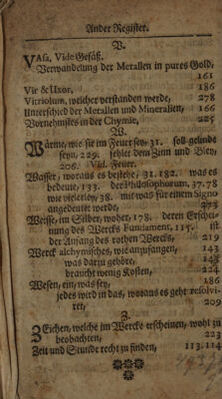 Ander Register.
V.
VAsa, Vide Gefäß.
Verwandelung der Metallen in pures Gold,
161
Vir & Uxor, 186
Vitriolum, welcher verstanden werde, 278
Unterschied der Metallen und Mineralien, 166
Vornehmstes in der Chymie, 225
W.
Wärme, wie sie im Feuer sey, 31. soll gelinde
seyn, 229. fehlet dem Zinn und Bley,
206. Vid. Feuer.
Wasser, woraus es bestehe, 31. 182. was es
bedeute, 133. der Philosophorum, 37. 78
wie vielerley, 38. mit was für einem Signo
angedeutet werde, 273
Weisse, im Silber, woher, 178. deren Erschei-
nung des Wercks Fundament, 115. ist
der Anfang des rothen Wercks, 219
Werck alchymisches, wie anzufangen, 143
was darzu gehöre, 143
braucht wenig Kosten, 224
Wesen, ein, was sey, 186
jedes wird in das, woraus es geht resolvi-
ret, 209
Z.
Zeichen, welche im Wercke erscheinen, wohl zu
beobachten, 223
Zeit und Stunde recht zu finden, 113. 114